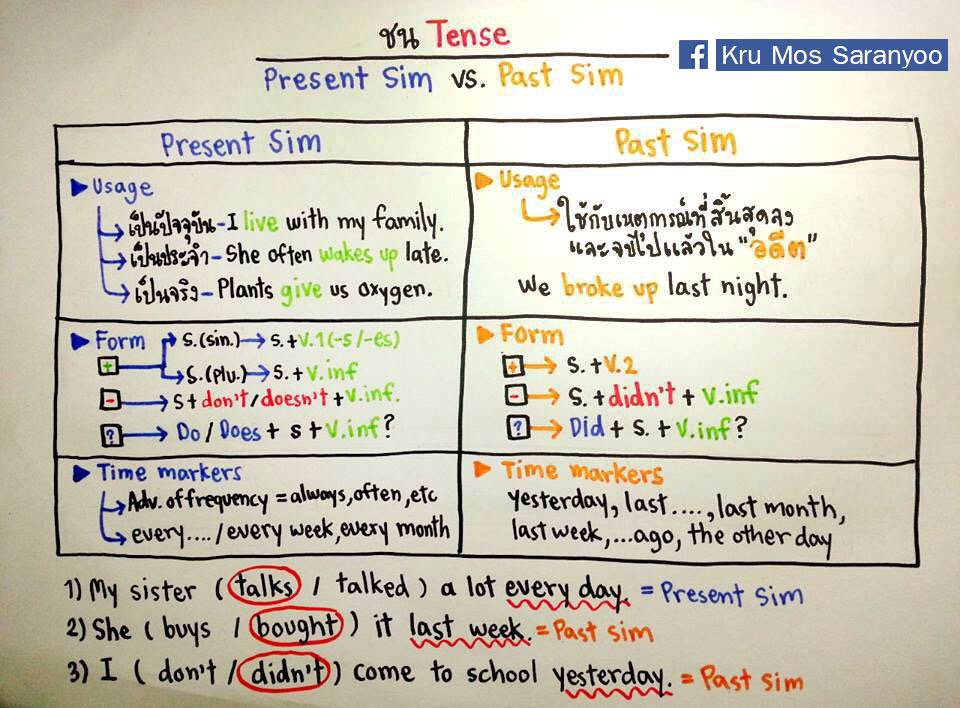 ชน Tense
Present Sim vs. Past Sim
f Kru Mos Saranyoo
Present Sim
▶ Usage
เป็นปัจจุบัน - I live with my family.
เป็นประจำ - She often wakes up late.
เป็นจริง - Plants give us oxygen.
Past Sim
▶ Usage
ใช้กับเหตุการณ์ที่สิ้นสุดลง
และจบไปแล้วใน "อดีต"
We broke up last night.
▶ Form
+ S.(sin.) → S. + V.1(-s/-es)
S.(plu.) → S. + V.inf
- → S + don't / doesn't + V.inf.
? → Do / Does + S + V.inf?
▶ Form
+ → S. + V.2
- → S. + didn't + V.inf
? → Did + S. + V.inf?
▶ Time markers
Adv. of frequency = always, often, etc
every.... / every week, every month
▶ Time markers
yesterday, last ...., last month,
last week, ...ago, the other day
1) My sister ( talks / talked ) a lot every day. = Present Sim
2) She ( buys / bought ) it last week. = Past sim
3) I ( don't / didn't ) come to school yesterday. = Past sim